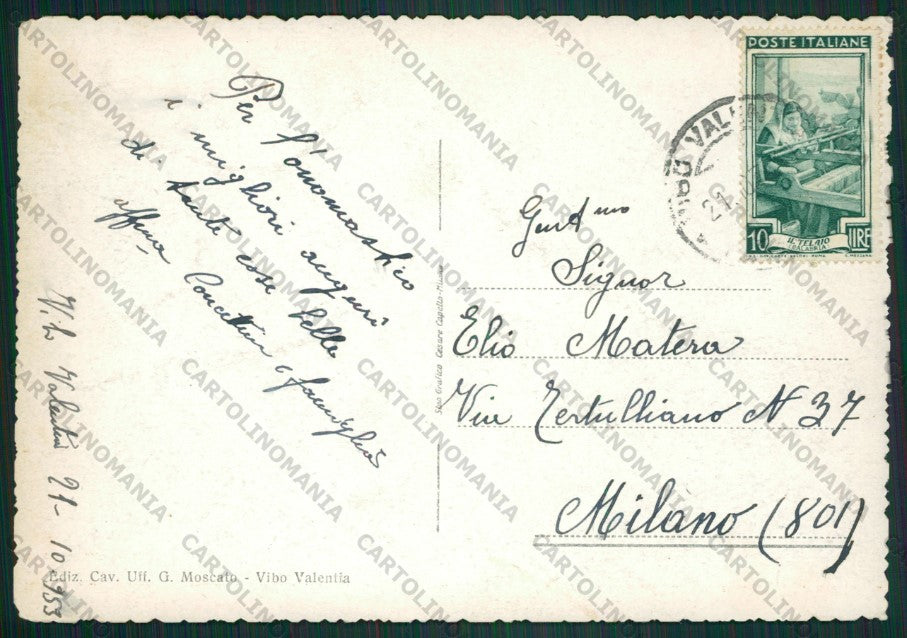 Per l'onomastico
i migliori auguri
di tante cose belle
affma Concettina e famiglia
V.bo Valentia 21-10-953
Ediz. Cav. Uff. G. Moscato - Vibo Valentia
Stab. Grafico Cesare Capello-Milano
POSTE ITALIANE
10 LIRE
IL TELAIO
(CALABRIA)
VALEN
Gent mo
Signor
Elio Matera
Via Tertulliano N 37
Milano (801)
CARTOLINOMANIA